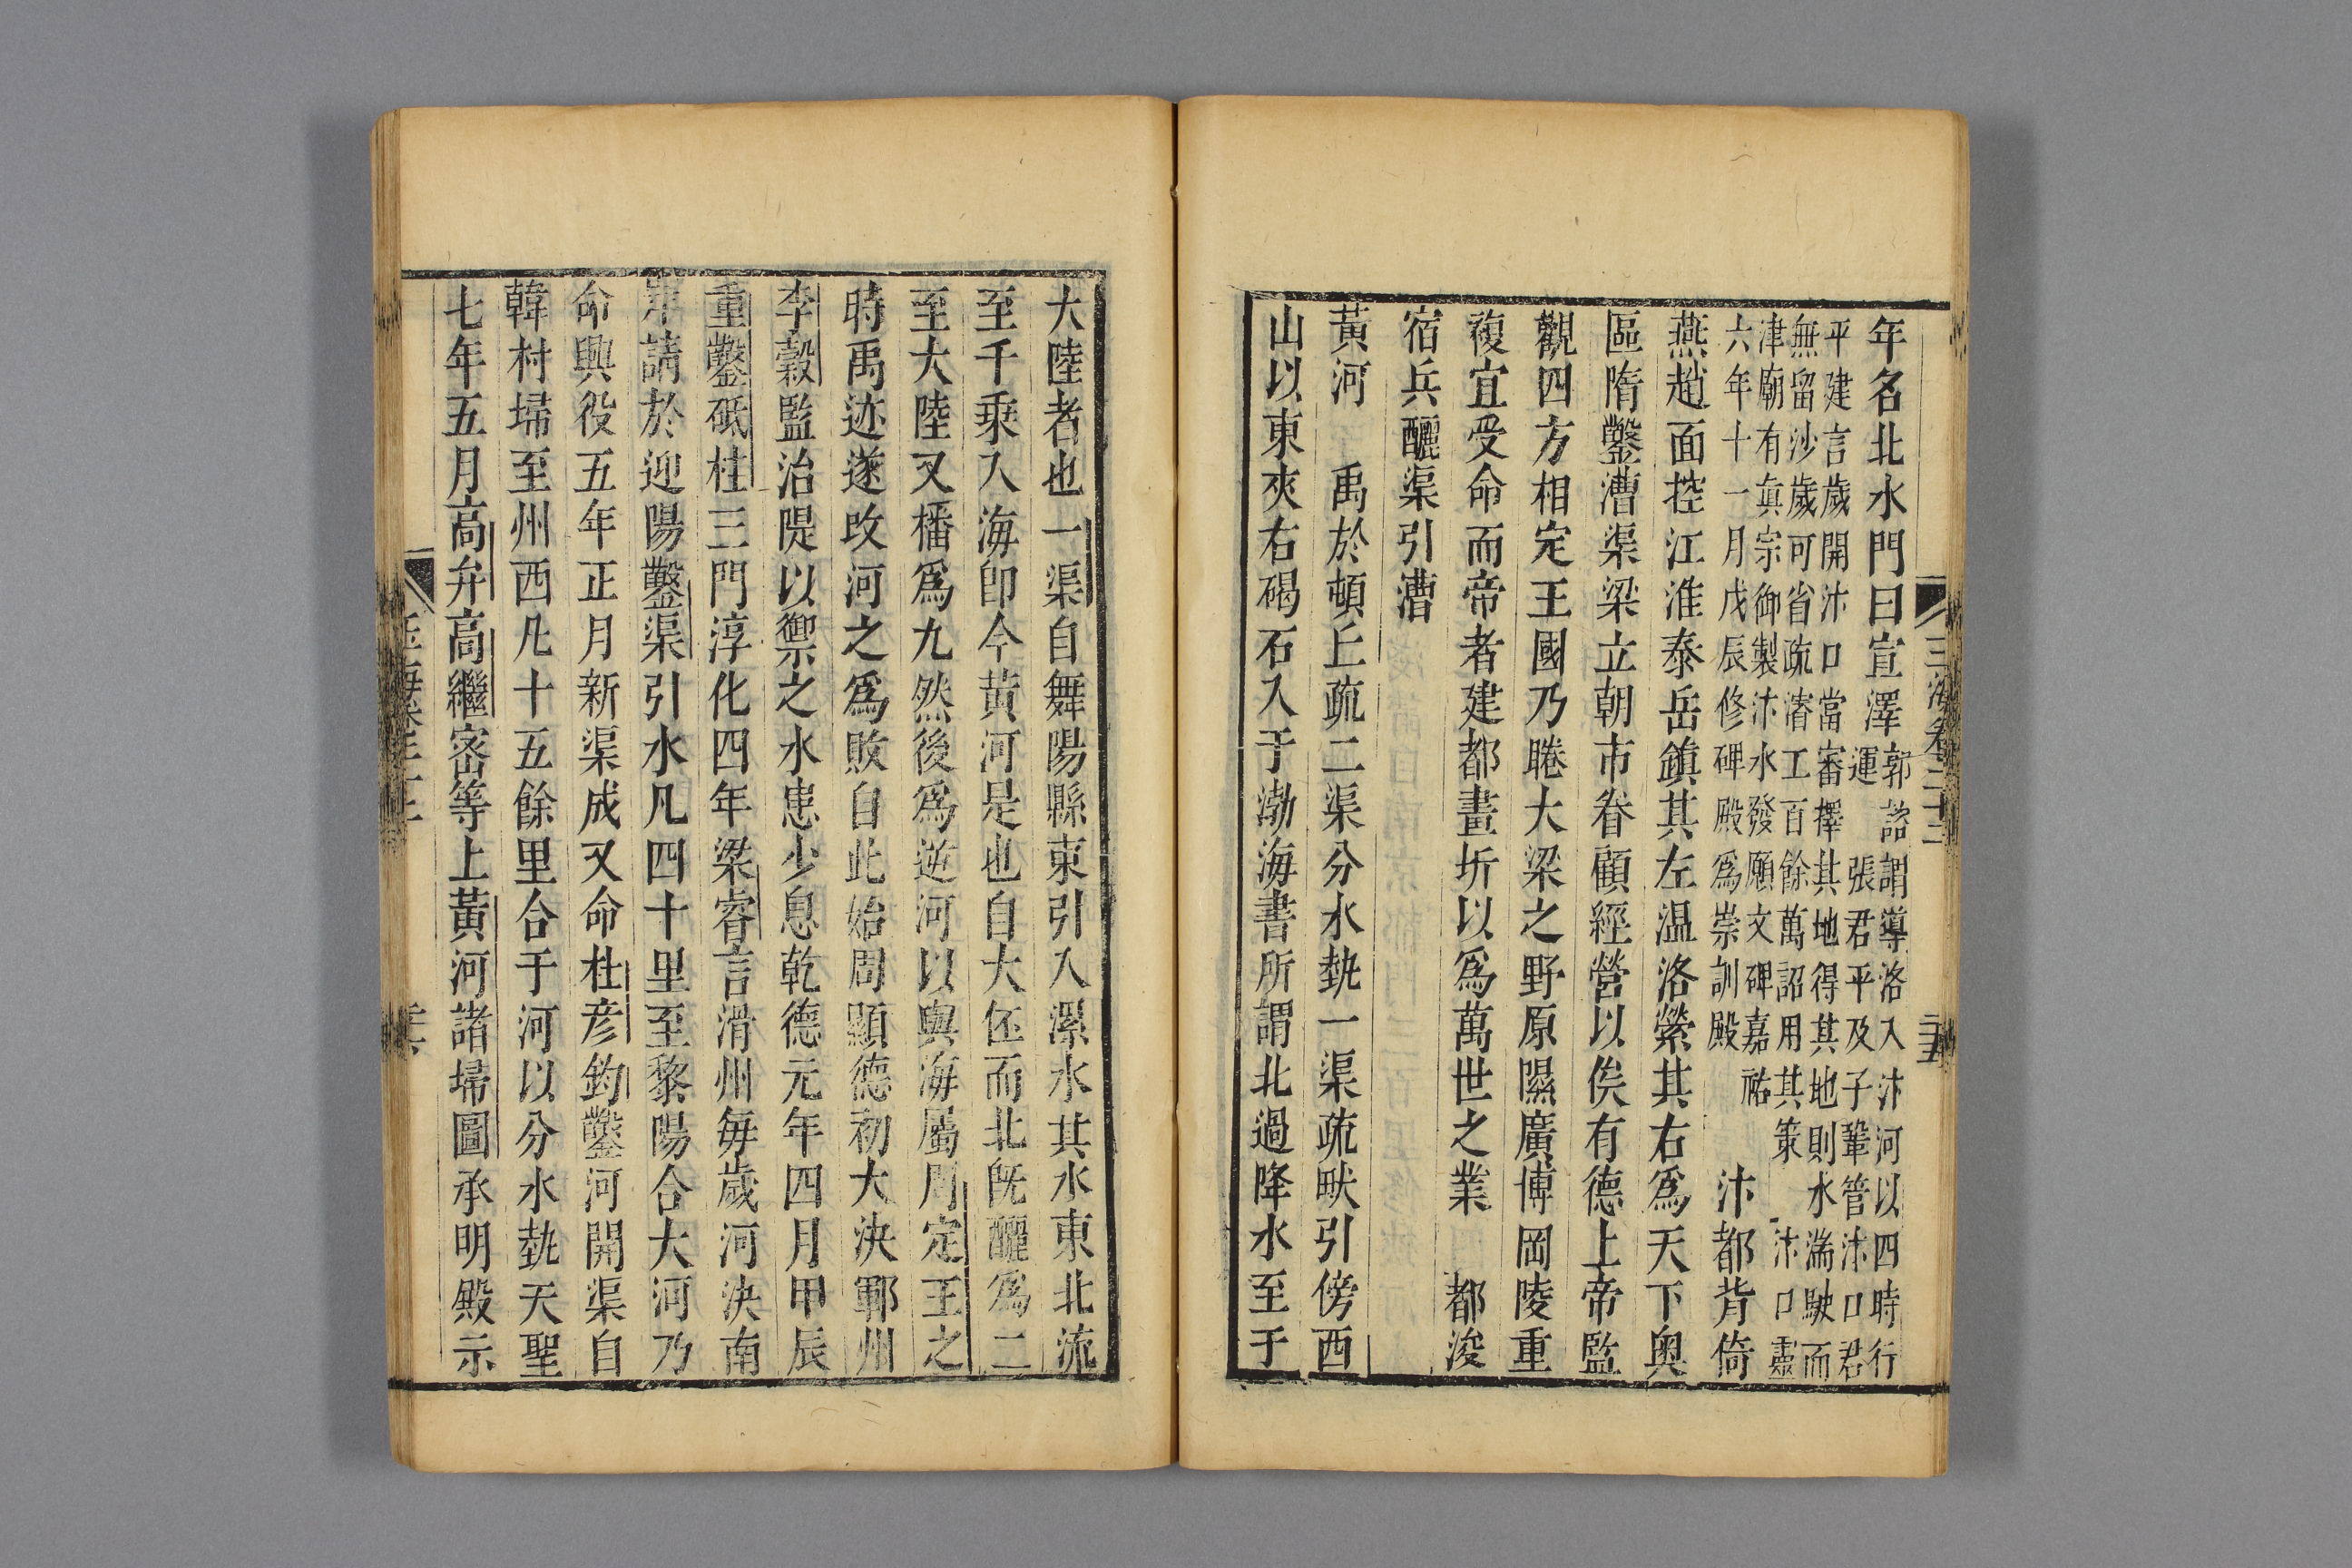 年名北水門曰宣澤郭諮謂導洛入汴河以四時行
運　張君平及子鞏管汴口君
平建言歲開汴口當審擇其地得其地則水湍駛而
無留沙歲可省疏濬工百餘萬詔用其策　汴口靈
津廟有真宗御製汴水發願文碑嘉祐
六年十一月戊辰修碑殿爲崇訓殿　汴都背倚
燕趙面控江淮泰岳鎮其左温洛縈其右爲天下奥
區隋鑿漕渠梁立朝市眷顧經營以俟有德上帝監
觀四方相定王國乃睠大梁之野原隰廣博岡陵重
複宜受命而帝者建都畫圻以爲萬世之業　都浚
宿兵釃渠引漕
黃河　禹於頓丘疏二渠分水埶一渠疏畎引傍西
山以東夾右碣石入于渤海書所謂北過降水至于
大陸者也一渠自舞陽縣東引入漯水其水東北流
至千乘入海卽今黃河是也自大伾而北旣釃爲二
至大陸又播爲九然後爲逆河以輿海屬周定王之
時禹迹遂改河之爲敗自此始周顯德初大決鄆州
李穀監治隄以禦之水患少息乾德元年四月甲辰
重鑿砥柱三門淳化四年梁睿言滑州每歲河決南
岸請於迎陽鑿渠引水凡四十里至黎陽合大河乃
命興役五年正月新渠成又命杜彦鈞鑿河開渠自
韓村埽至州西凡十五餘里合于河以分水埶天聖
七年五月高弁高繼密等上黃河諸埽圖承明殿示